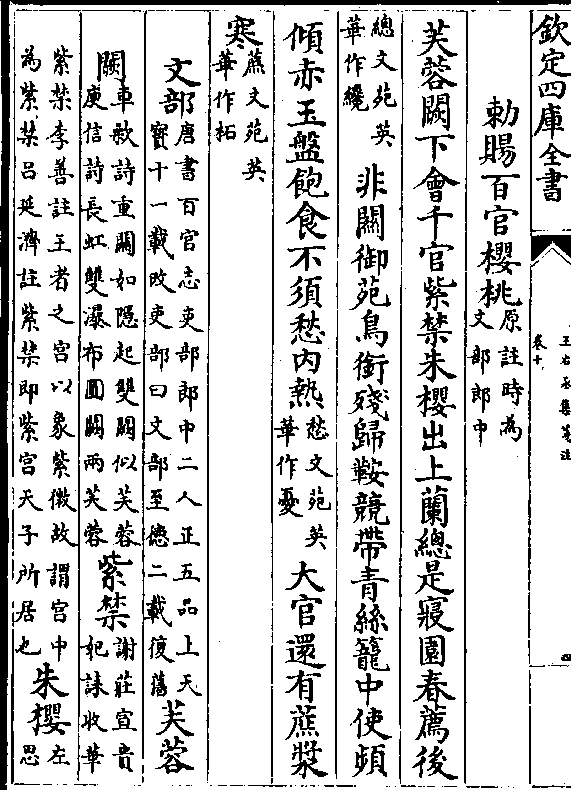 欽定四庫全書
王右丞集箋注
卷十
四
勅賜百官櫻桃原註時為文部郎中
芙蓉闕下會千官紫禁朱櫻出上蘭總是寢園春薦後
總文苑英華作纔非關御苑鳥銜殘歸鞍競帶青絲籠中使頻
傾赤玉盤飽食不須愁内熱愁文苑英華作憂大官還有蔗漿
寒蔗文苑英華作柘
文部唐書百官志吏部郎中二人正五品上天寳十一載改吏部曰文部至德二載復舊芙蓉
闕車㪉詩重關如隠起雙闕似芙蓉庾信詩長虹雙瀑布圓闕兩芙蓉紫禁謝莊宣貴妃誄收華
紫禁李善註王者之宫以象紫微故謂宫中為紫禁吕延濟註紫禁即紫宫天子所居也朱櫻左思